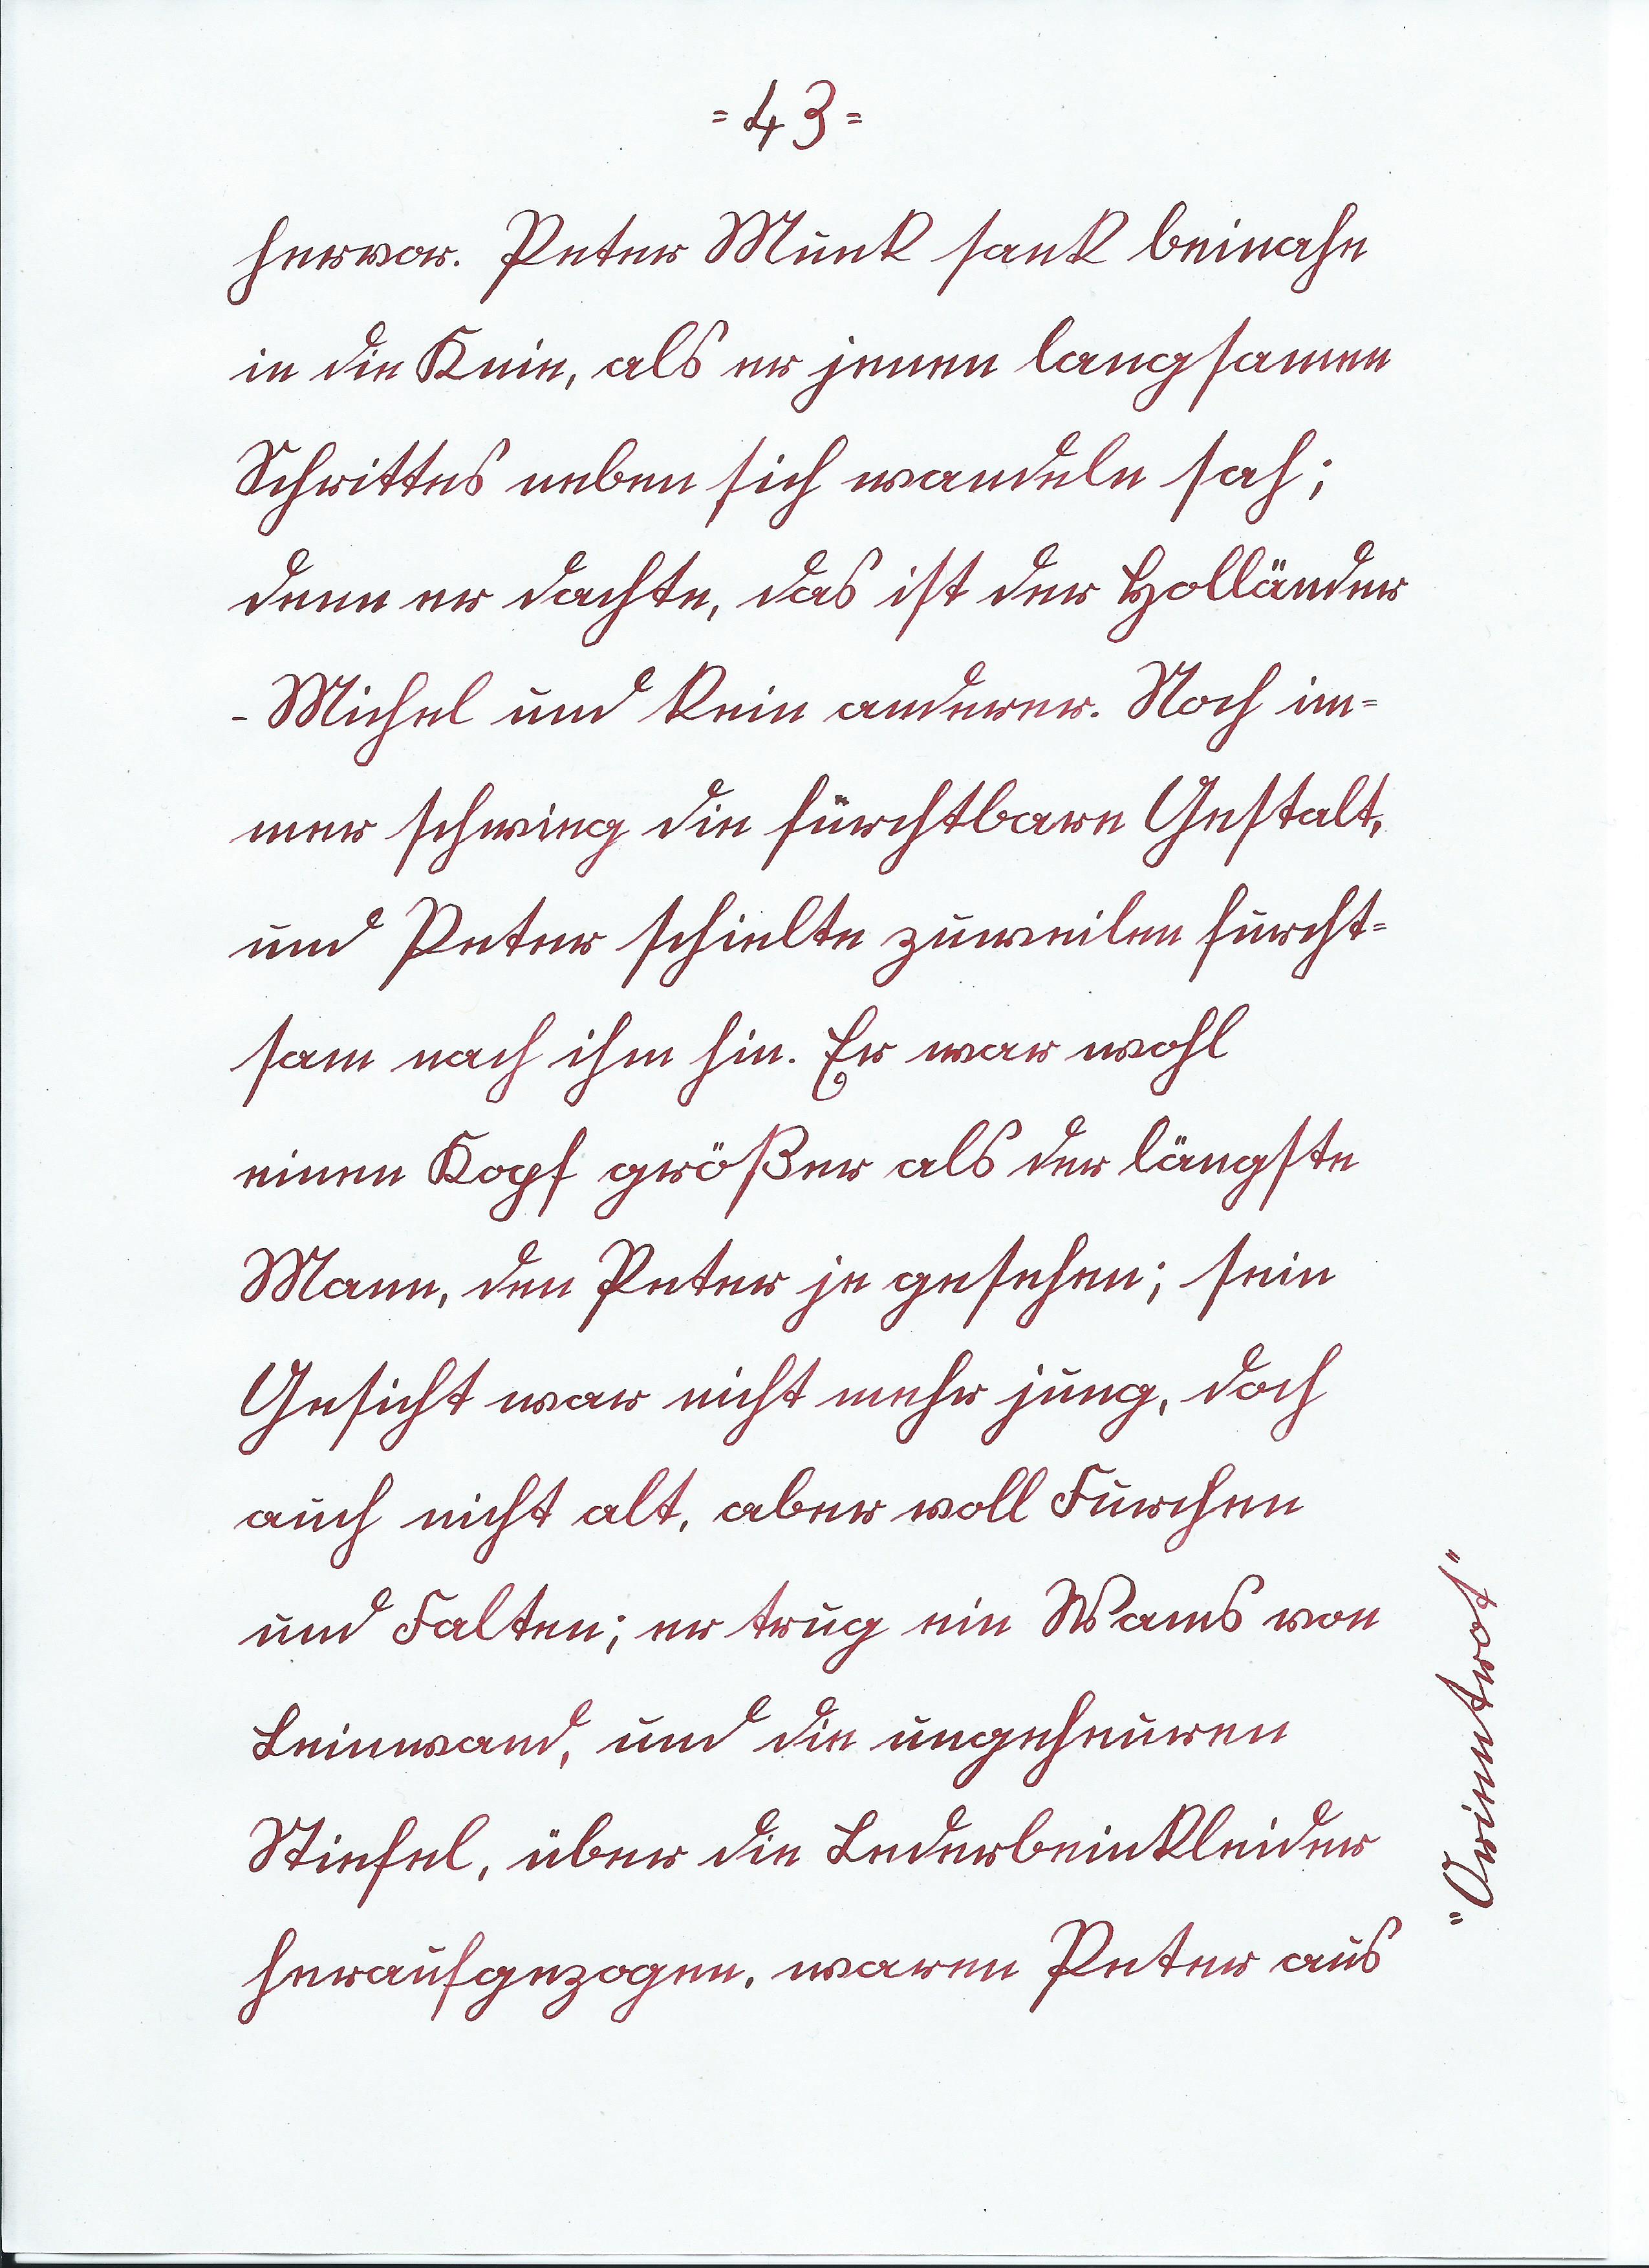 =43=
hervor. Peter Munk sank beinahe
in die Knie, als er jenen langsamen
Schrittes neben sich wandeln sah;
denn er dachte, das ist der Holländer
-Michel und kein anderer. Noch im=
mer schwieg die fürchtbare Gestalt,
und Peter schielte zuweilen furcht=
sam nach ihm hin. Er war wohl
einen Kopf größer als der längste
Mann, den Peter je gesehen; sein
Gesicht war nicht mehr jung, doch
auch nicht alt, aber voll Furchen
und Falten; er trug ein Wams von
Leinwand, und die ungeheuren
Stiefel, über die Lederbeinkleider
heraufgezogen, waren Peter aus
"Orientrot"